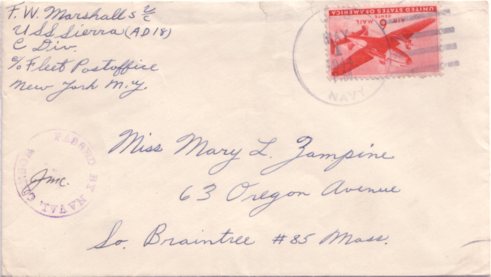 F. W. Marshall S 2/c
U S S Sierra (AD 18)
C Div.
c/o Fleet Postoffice
New York N.Y.
UNITED STATES OF AMERICA
6
AIR MAIL
NAVY
PASSED BY NAVAL CENSOR
Miss Mary L. Zampine
63 Oregon Avenue
So. Braintree #85 Mass.